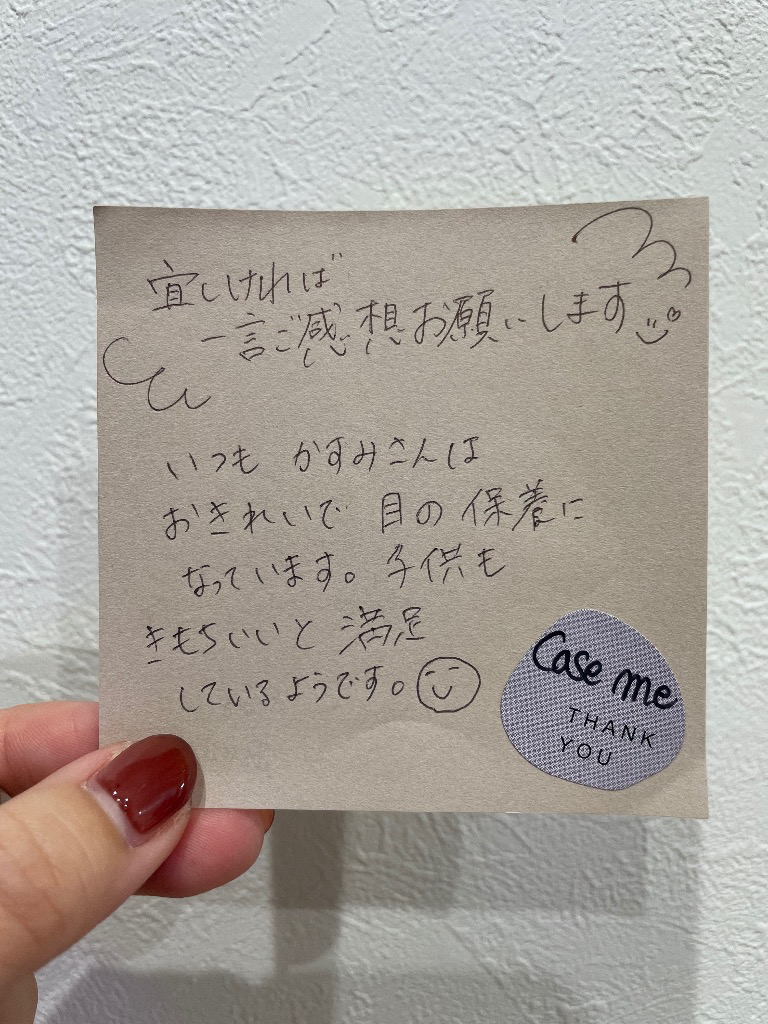 宜しければ
一言ご感想お願いします
いつも かすみさんは
おきれいで 目の保養に
なっています。子供も
きもちいいと 満足
しているようです。
Case me
THANK
YOU